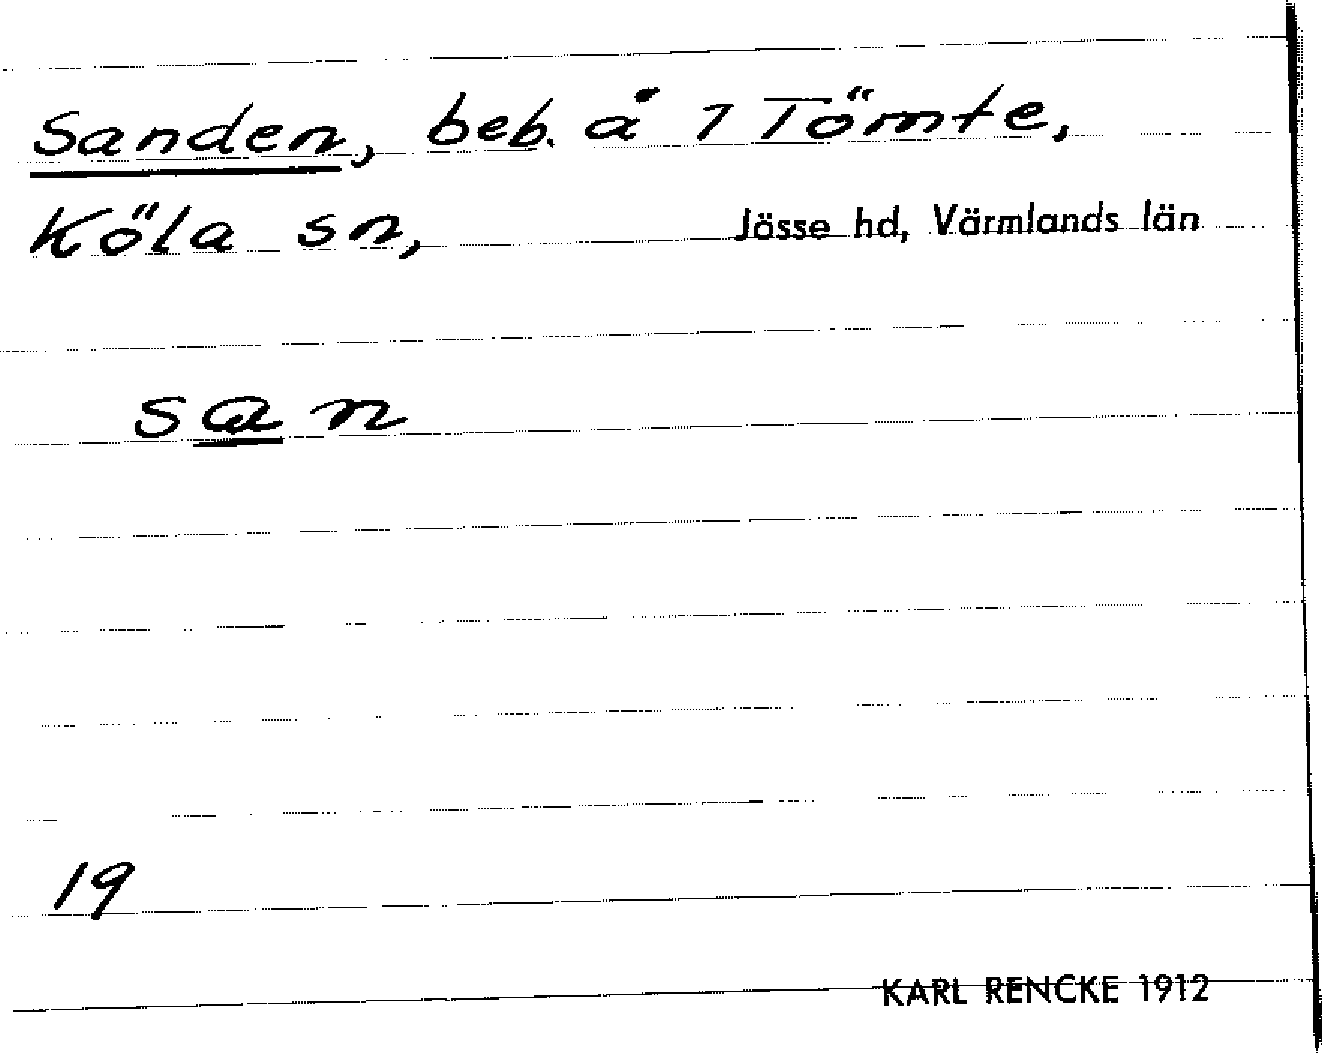 Sanden, beb. å 1 Tömte,
Köla sn, Jösse hd, Värmlands län
san
19
KARL RENCKE 1912